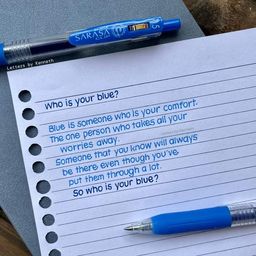 SARASA
Letters by Kenneth
Who is your blue?
Blue is someone who is your comfort.
The one person who takes all your
worries away.
Someone that you know will always
be there even though you've
put them through a lot.
So who is your blue?